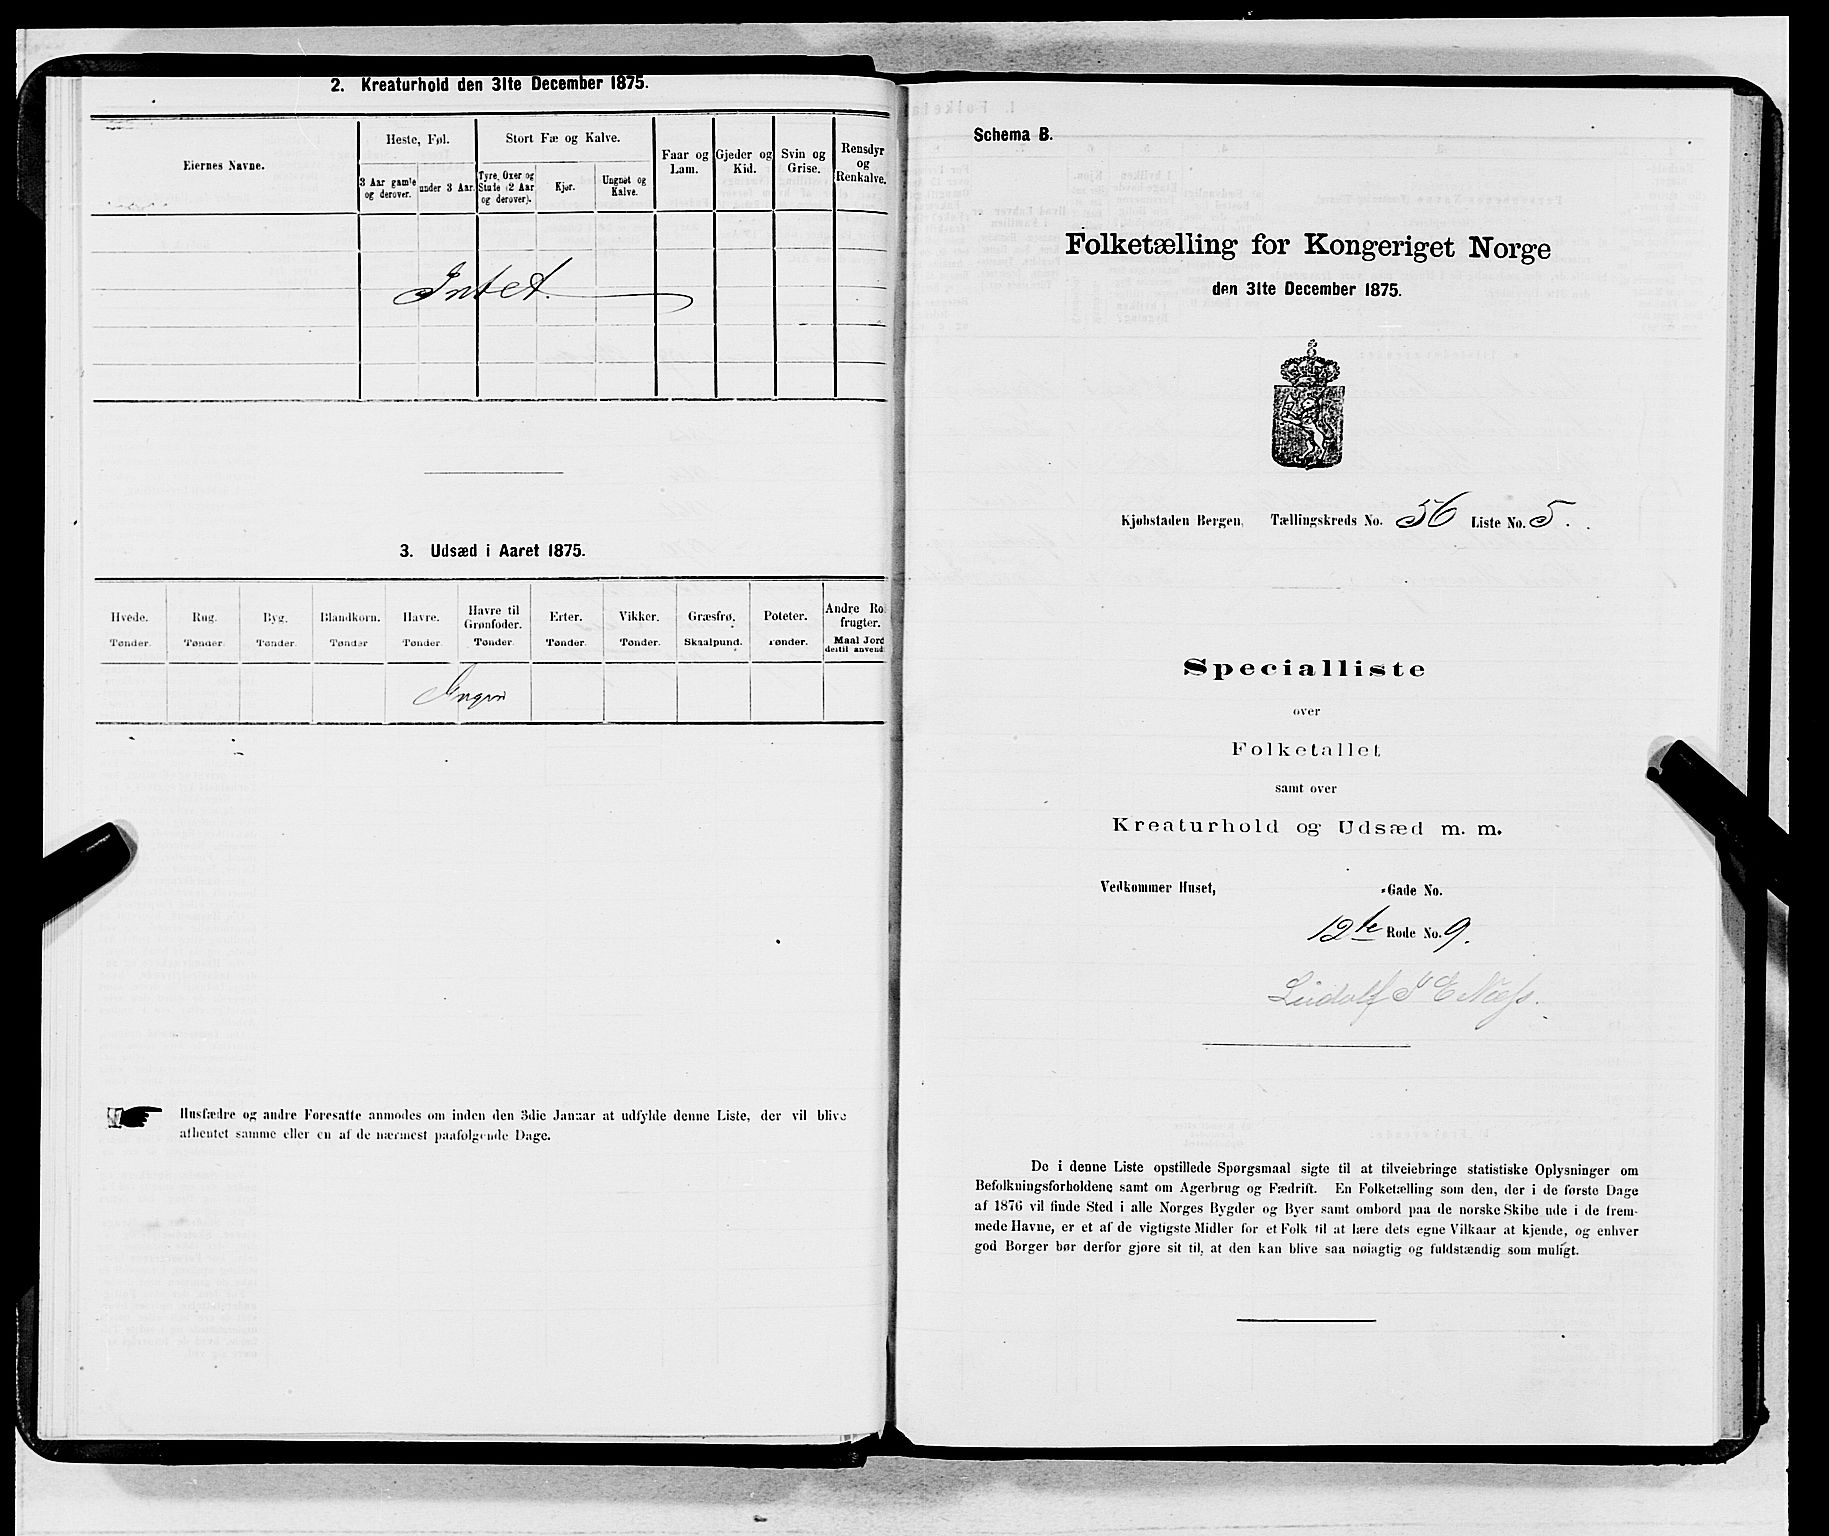 2. Kreaturhold den 31te December 1875.
Eiernes Navne.
Heste, Føl.
Stort Fæ og Kalve.
Faar og Lam.
Gjeder og Kid.
Svin og Grise.
Rensdyr og Renkalve.
3 Aar gamle og derover.
under 3 Aar.
Tyre, Oxer og Stude (2 Aar og derover).
Kjør.
Ungnøt og Kalve.
Intet.
3. Udsæd i Aaret 1875.
Hvede. Rug. Byg. Blandkorn. Havre. Havre til Grønfoder. Erter. Vikker. Græsfrø. Poteter. Andre Ro frugter.
Tønder. Tønder. Tønder. Tønder Tønder. Tønder. Tønder. Tønder. Skaalpund. Tønder. Maal Jord dertil anvend
Ingen
Husfædre og andre Foresatte anmodes om inden den 3die Januar at udfylde denne Liste, der vil blive
afhentet samme eller en af de nærmest paafølgende Dage.
Schema B.
Folketælling for Kongeriget Norge
den 31te December 1875.
Kjøbstaden Bergen, Tællingskreds No. 56 Liste No. 5.
Specialliste
over
Folketallet
samt over
Kreaturhold og Udsæd m. m.
Vedkommer Huset, -Gade No.
12te Rode No. 9.
Ludolf E Næss.
De i denne Liste opstillede Spørgsmaal sigte til at tilveiebringe statistiske Oplysninger om
Befolkningsforholdene samt om Agerbrug og Fædrift. En Folketælling som den, der i de første Dage
af 1876 vil finde Sted i alle Norges Bygder og Byer samt ombord paa de norske Skibe ude i de frem-
mede Havne, er et af de vigtigste Midler for et Folk til at lære dets egne Vilkaar at kjende, og enhver
god Borger bør derfor gjøre sit til, at den kan blive saa nøiagtig og fuldstændig som muligt.